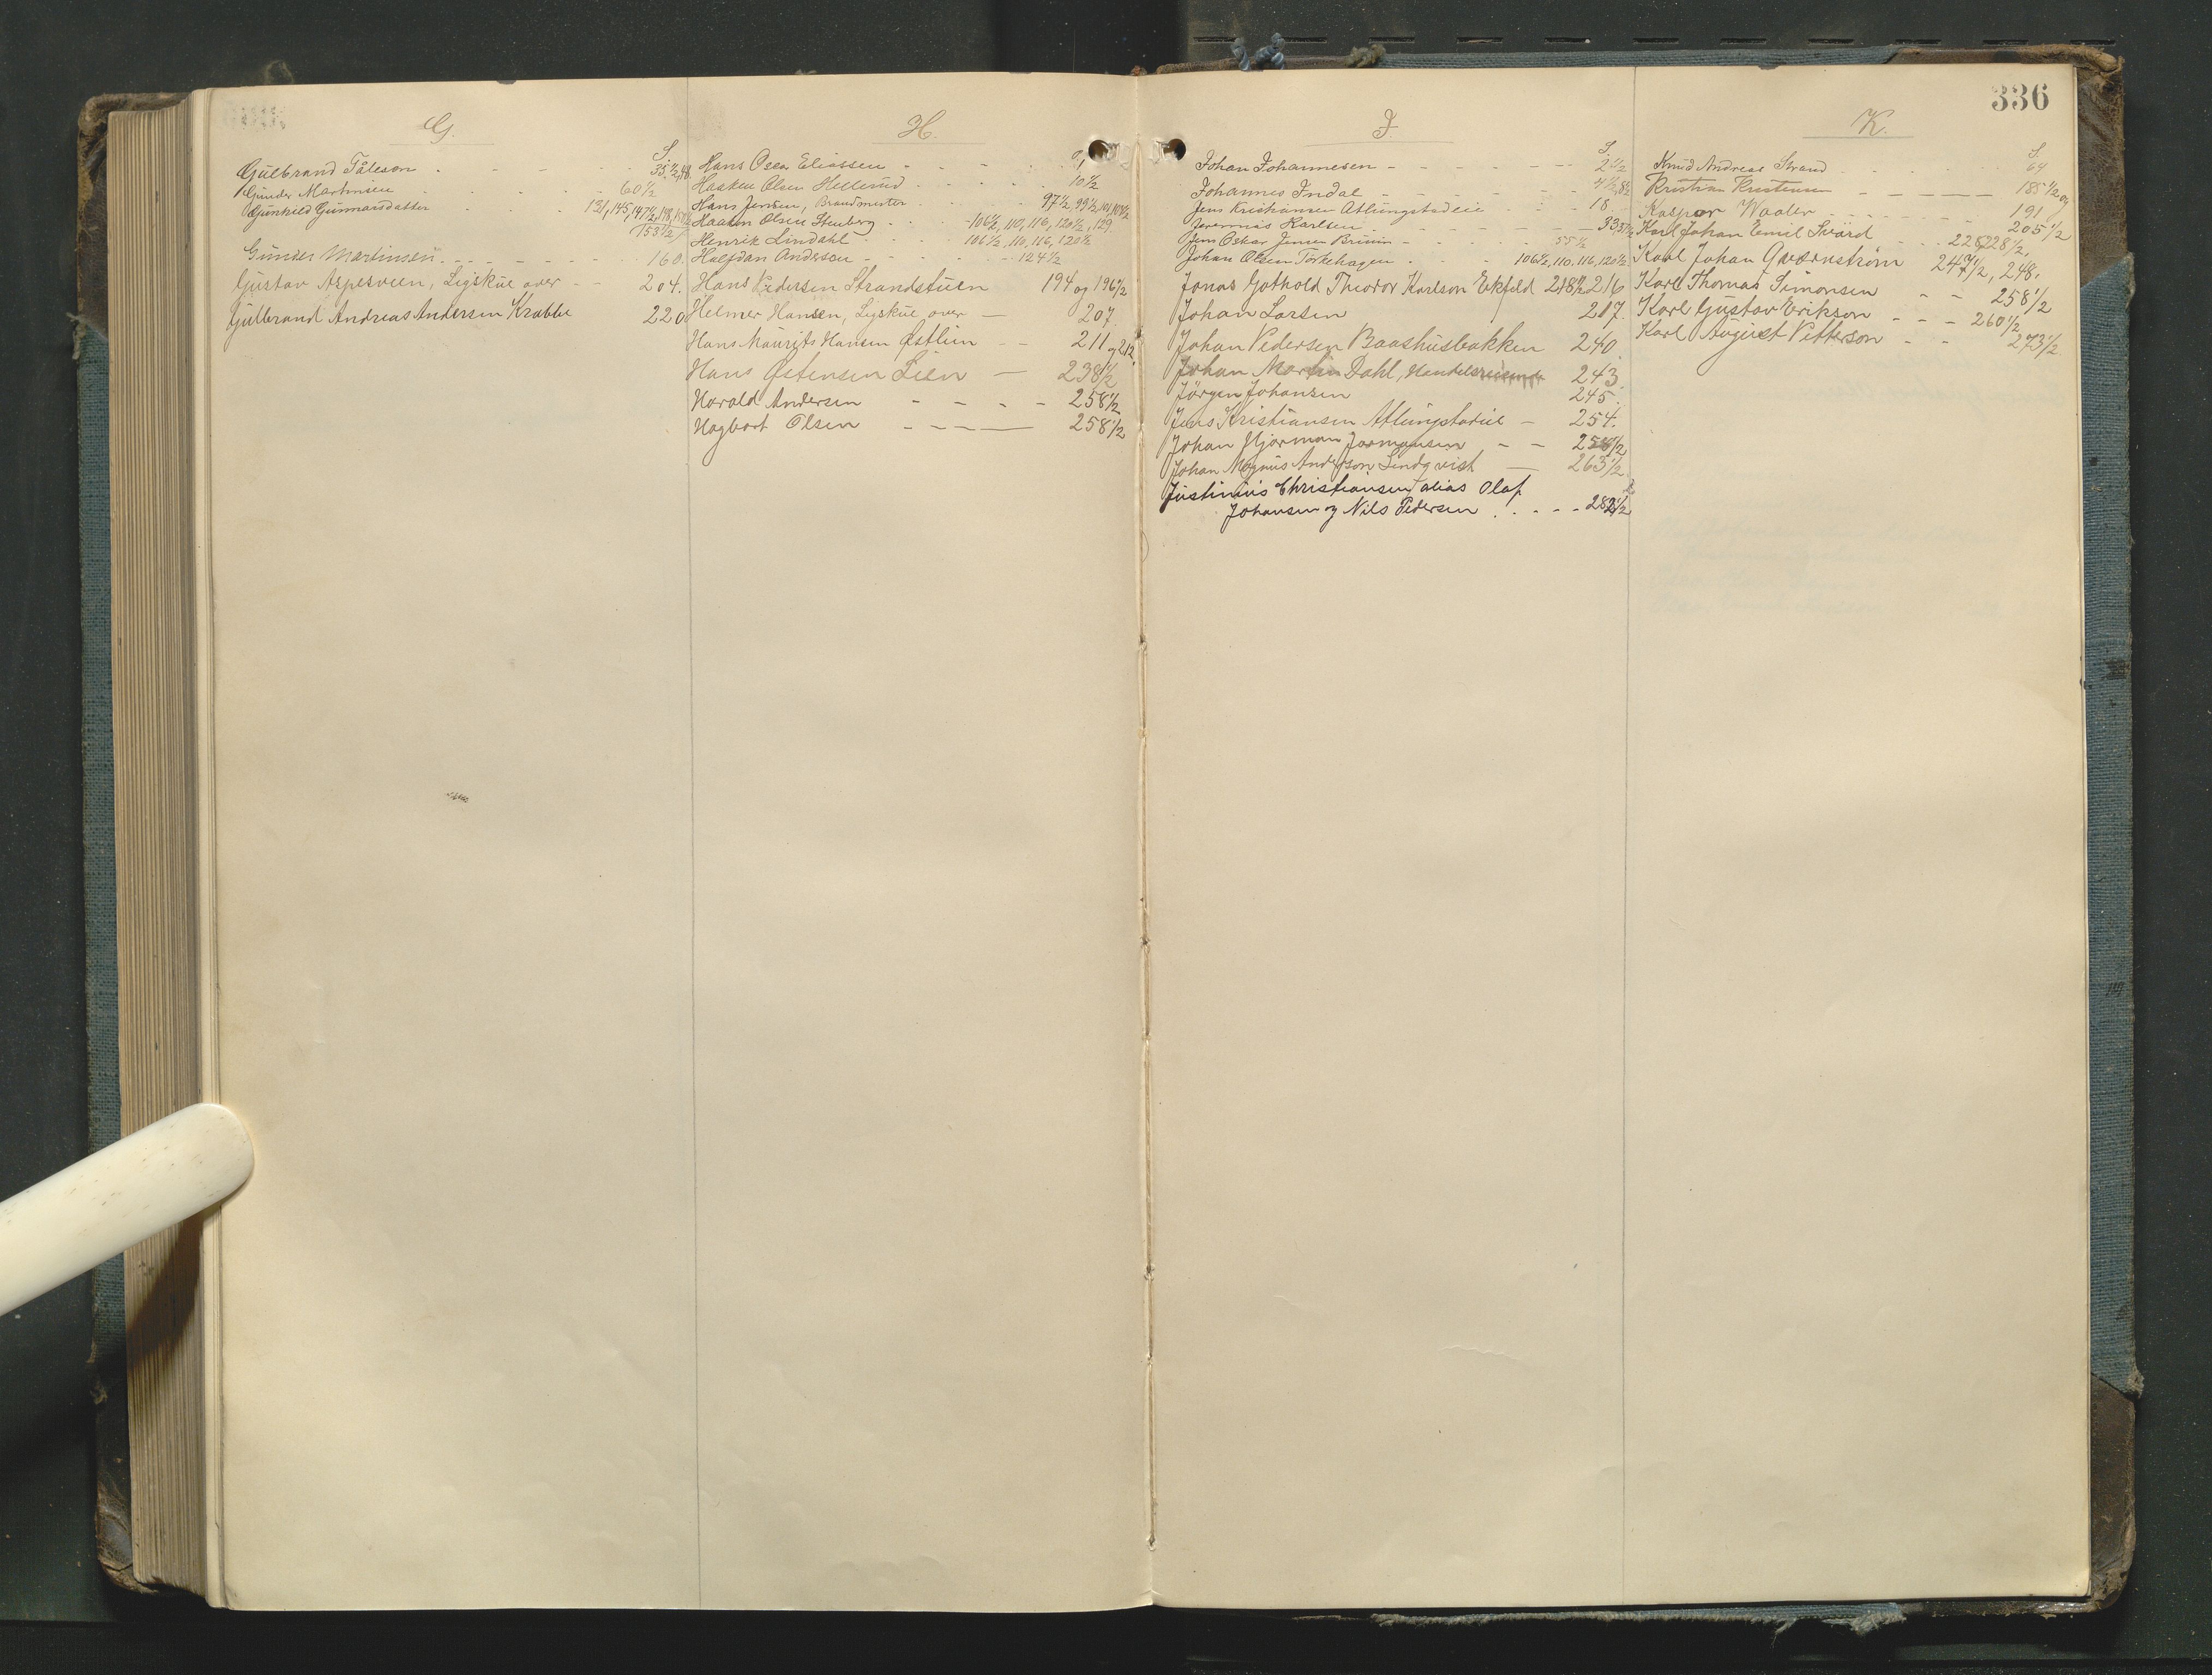 336
G.
S.
Gulbrand Tåleson - - - - 35½, 48.
Gunder Martinsen - - - - 60½
Gunhild Gunnarsdatter - - - 131, 145, 147½, 148, 150½
153½
Gunder Martinsen - - - - 160.
Gustav Aspesveen, Ligskue over - - 204.
Gulbrand Andreas Andersen Krabbe 220
H.
Hans Oscar Eliassen - - - -
Haaken Olsen Hellerud - - - - 10½
Hans Jensen, Brandmester - - - 97½, 99½, 101, 103½
Haaken Olsen Stenberg - - - 106½, 110, 116, 120½, 129.
Henrik Lindahl - - - 106½, 110, 116, 120½
Halfdan Anderson - - - - 124½
Hans Pedersen Strandstuen 194 og 196½
Helmer Hansen, Ligskue over - 207.
Hans Maurits Hansen Østlien - - 211 og 212
Hans Østensen Lien - 238½
Harald Andersen - - - - 258½
Hagbart Olsen - - - - 258½
J
S.
Johan Johannesen - - - - - - 2½
Johannes Indal - - - - - - 4½, 8½
Jens Kristiansen Atlungstadeie - - 18
Jeremias Karlsen - - - - - - 33, 37½
Jens Oskar Jensen Bruun - - - - 55½
Johan Olsen Torkehagen - - - 106½, 110, 116, 120½
Jonas Gothold Theodor Karlson Ekfeld 216
Johan Larsen 217.
Johan Pedersen Baashusbakken 240
Johan Martin Dahl, Handelsreisende 243.
Jörgen Johansen 245.
Jens Kristiansen Atlungstadeie - 254.
Johan Hjarman - -
Johan Magnus Anderson Lindqvist - 263½
Justinius Christiansen alias Olaf
Johansen og Nils Pedersen - - - - 282½
K.
S.
Knud Andreas Strand - - - - - 64
Kristian Kristensen - - - 188½ og
Kaspar Waaler - - - - - - 191
Karl Johan Emil Svärd - - - - 205½
228½,
Karl Johan Qværnström 247½, 248.
Karl Thomas Simonsen - - 258½
Karl Gustav Erikson - - - 260½
Karl August Petterson - - 273½